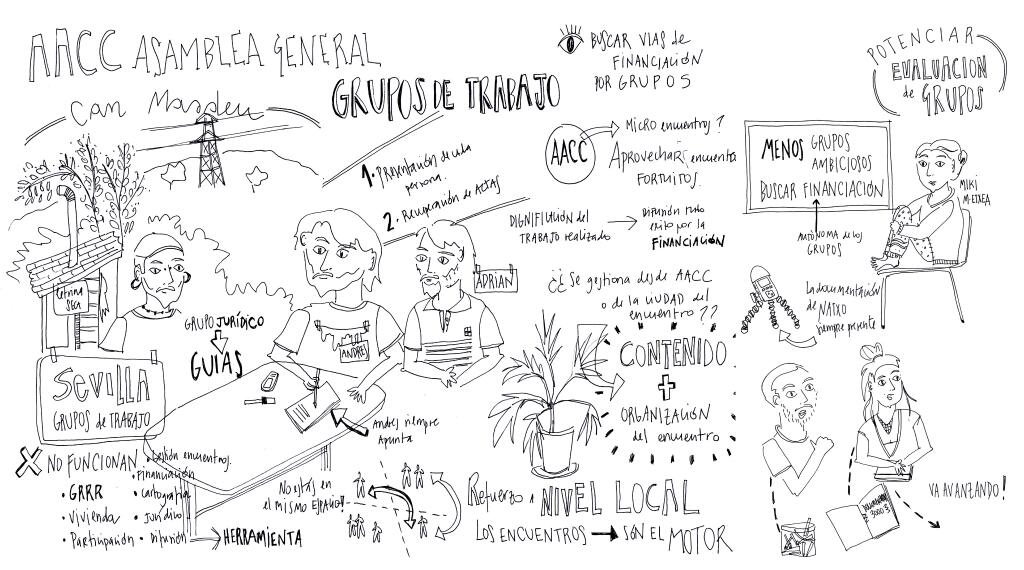 AACC ASAMBLEA GENERAL
Can Masdeu
GRUPOS DE TRABAJO
1. Presentación de cada
persona.
2. Recuperación de ACTAS
BUSCAR VIAS de
FINANCIACIÓN
POR GRUPOS
POTENCIAR
EVALUACION
de GRUPOS
AACC
MICRO encuentros?
APROVECHAR encuentros
FORTUITOS.
MENOS GRUPOS
AMBICIOSOS
BUSCAR FINANCIACIÓN
AUTÓNOMA de los
GRUPOS
MIKI
METXEA
DIGNIFICACIÓN del
TRABAJO realizado
DIFUSIÓN
por la
FINANCIACIÓN
¿¿Se gestiona desde AACC
o de la CIUDAD del
encuentro??
ADRIAN
ANDRES
SECA
GRUPO JURÍDICO
GUIAS
SEVILLA
GRUPOS de TRABAJO
La documentación
de NATXO
siempre presente
CONTENIDO
+
ORGANIZACIÓN
del encuentro
Andres siempre
Apunta
X NO FUNCIONAN
• Gestión encuentros.
• Financiación
• GRRR
• cartografía
• Vivienda
• Jurídico
• Participación
• Difusión
HERRAMIENTA
No estás en
el mismo ESPACIO!!
Refuerzo a NIVEL LOCAL
LOS ENCUENTROS → SON EL MOTOR
3000 $
VA AVANZANDO!